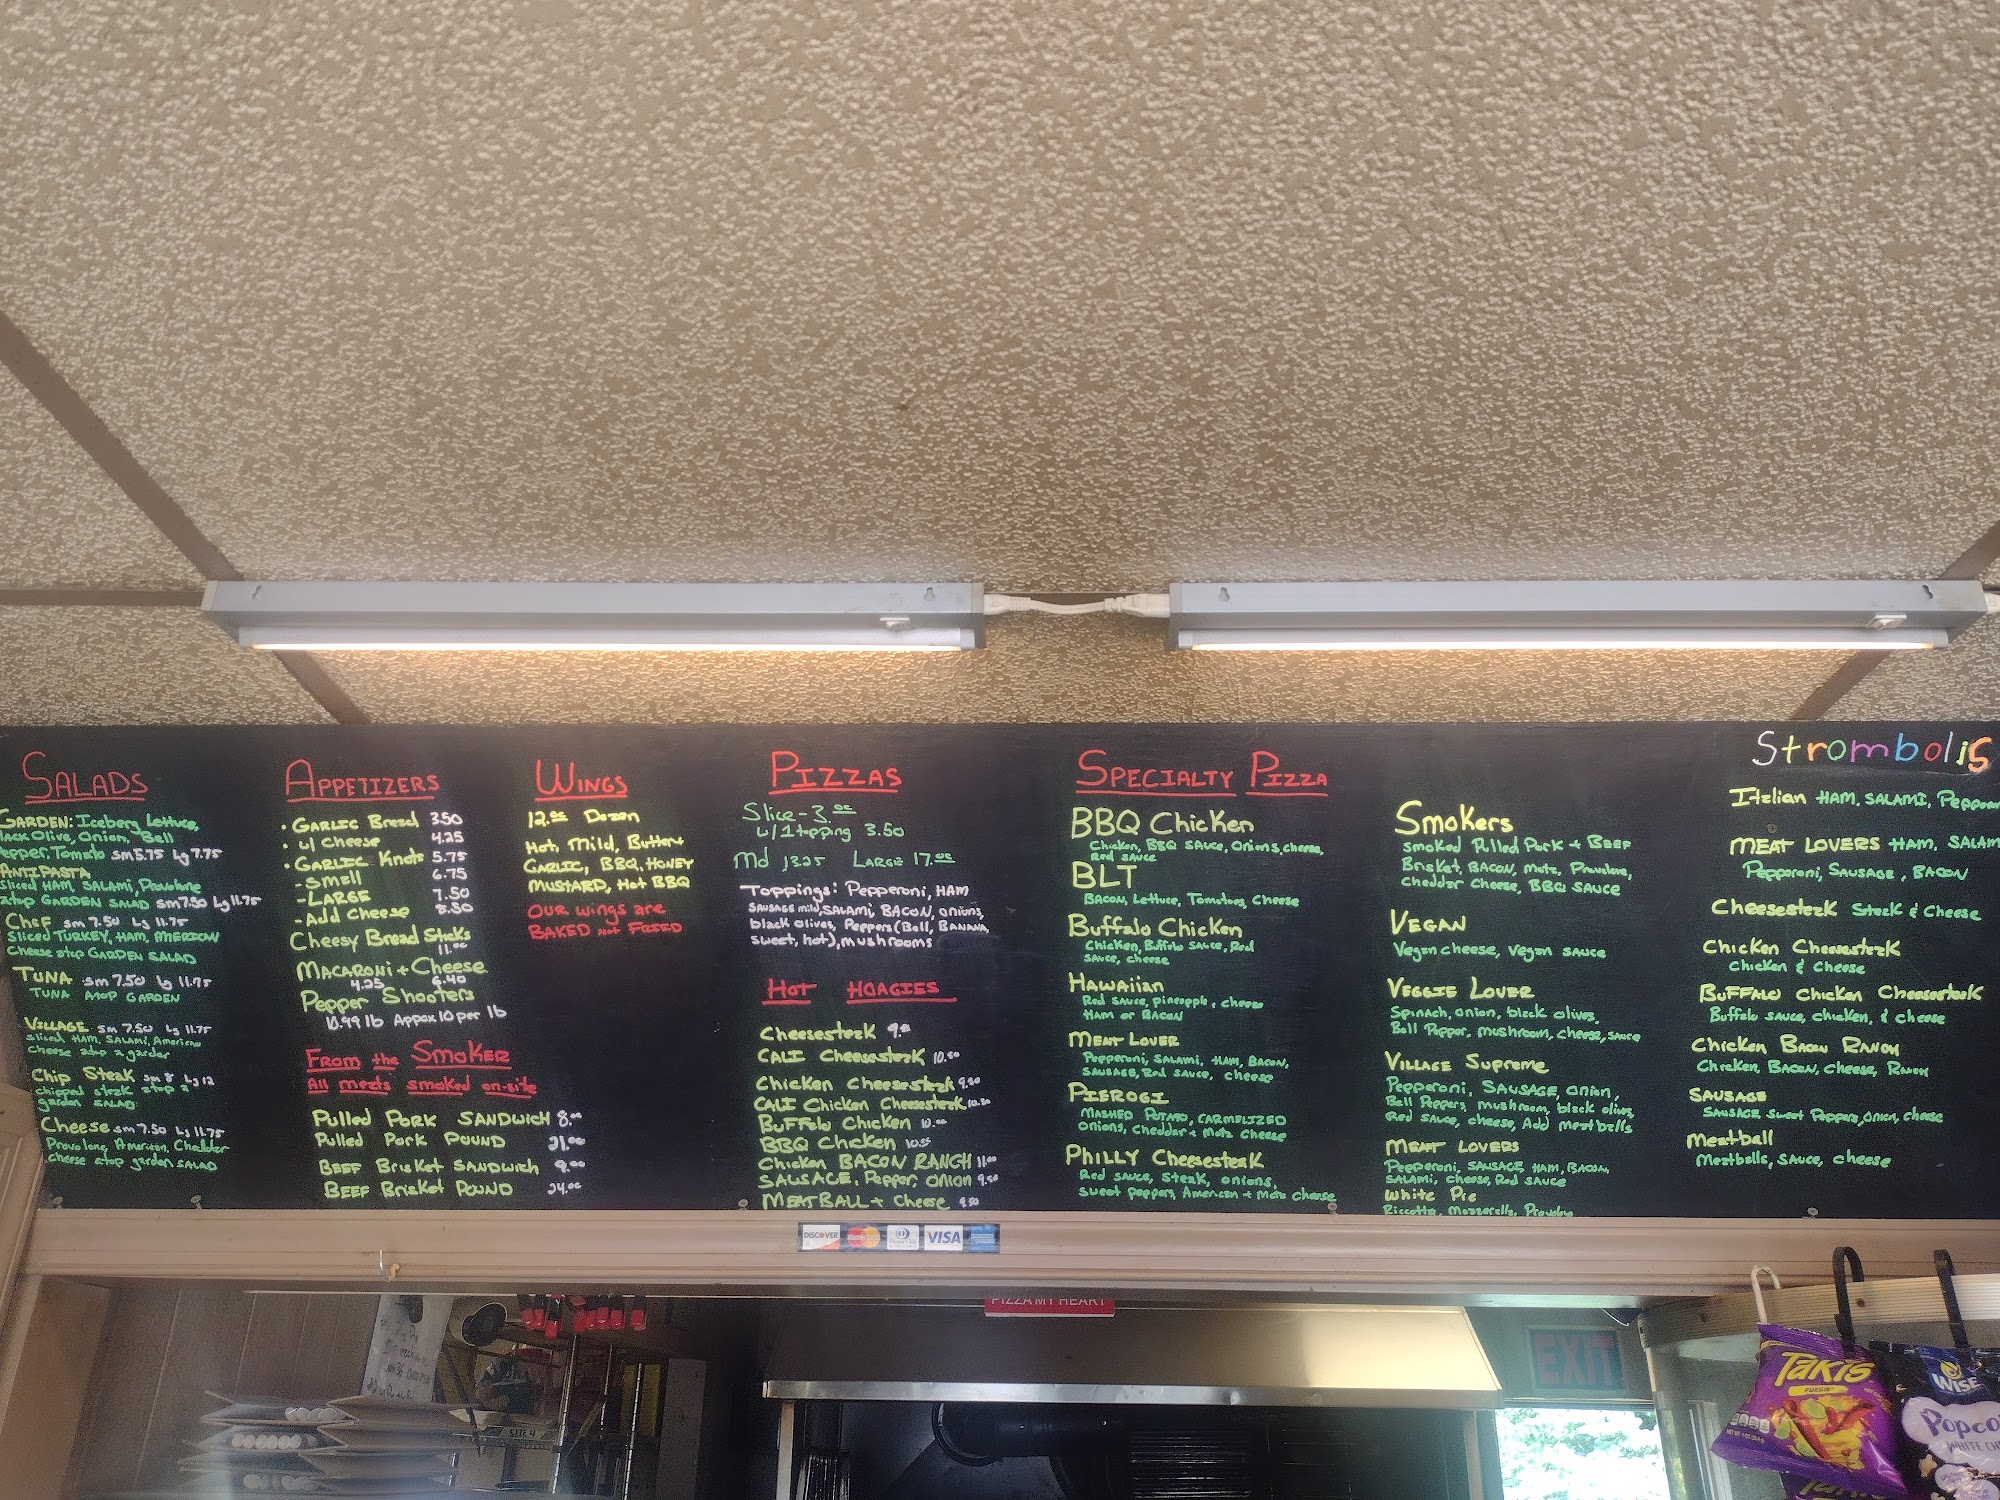 SALADS
GARDEN: Iceberg Lettuce,
lack Olive, Onion, Bell
epper, Tomato sm 5.75 Lg 7.75
ANTIPASTA
Sliced HAM, SALAMI, Provolone
atop GARDEN SALAD sm 7.50 Lg 11.75
CheF sm 7.50 Lg 11.75
Sliced TURKEY, HAM, MERICAN
Cheese atop GARDEN SALAD
TUNA sm 7.50 Lg 11.75
TUNA Atop GARDEN
VILLAGE sm 7.50 Lg 11.75
sliced HAM, SALAMI, American
cheese atop a garden
Chip Steak sm 8 Lg 12
chipped steak atop a
garden SALAD.
Cheese sm 7.50 Lg 11.75
Provolone, American, Cheddar
Cheese atop garden SALAD
APPETIZERS
• GARLIC Bread 3.50
• w/ cheese 4.25
• GARLIC Knots 5.75
- Small 6.75
- LARGE 7.50
- Add Cheese 8.50
Cheesy Bread Sticks
11.00
MACARONI + Cheese
4.25 6.40
Pepper Shooters
10.99 lb Approx 10 per lb
From the Smoker
All meats smoked on-site
Pulled PORK SANDWICH 8.00
Pulled Pork POUND 21.00
BEEF Brisket SANDWICH 9.00
BEEF Brisket POUND 24.00
WINGS
Dozen
Hot, Mild, Butter +
GARLIC, BBQ, HONEY
MUSTARD, Hot BBQ
OUR wings are
BAKED not FRIED
PIZZAS
Slice - 3.00
w/ 1 topping 3.50
Md 13.25 LARGE 17.00
Toppings: Pepperoni, HAM
SAUSAGE mild, SALAMI, BACON, onions,
black olives, Peppers (Bell, BANANA,
sweet, hot), mushrooms
HOT HOAGIES
Cheesesteak
CALI Cheesesteak
Chicken Cheesesteak
CALI Chicken Cheesesteak
BuFFalo Chicken
BBQ Chicken
Chicken BACON RANCH 11.00
SAUSAGE, Pepper, Onion
MEATBALL + Cheese
SPECIALTY PIZZA
BBQ Chicken
Chicken, BBQ SAUCE, Onions, cheese,
Red sauce
BLT
BACON, Lettuce, Tomatoes, Cheese
Buffalo Chicken
Chicken, Buffalo Sauce, Red
Sauce, cheese
Hawaiian
Red Sauce, pineapple, cheese
HAM or BACON
MEAT LOVER
Pepperoni, SALAMI, HAM, BACON,
SAUSAGE, Red Sauce, cheese
PIEROGI
MASHED POTATO, CARMELIZED
Onions, Cheddar + Motz Cheese
PHILLY Cheesesteak
Red sauce, steak, onions,
sweet peppers, American + Motz Cheese
Smokers
smoked Pulled Pork + BEEF
Brisket, BACON, Motz, Provolone,
Cheddar Cheese, BBQ SAUCE
VEGAN
Vegan cheese, Vegan sauce
VEGGIE LOVER
Spinach, onion, black olives,
Bell Pepper, mushroom, cheese, sauce
VILLAGE Supreme
Pepperoni, SAUSAGE, onion,
Bell Peppers, mushroom, black olives,
Red sauce, cheese, Add meatballs
MEAT LOVERS
Pepperoni, SAUSAGE, HAM, BACON,
SALAMI, cheese, Red SAUCE
White Pie
Riccotta, Mozzarella, Provolone
Strombolis
Italian HAM, SALAMI, Pepperon
MEAT LOVERS HAM, SALAM
Pepperoni, SAUSAGE, BACON
Cheesesteak Steak & Cheese
Chicken Cheesesteak
Chicken & Cheese
BuFFalo Chicken Cheesesteak
Buffalo sauce, chicken, & cheese
Chicken Bacon Ranch
Chicken, BACON, cheese, Ranch
SAUSAGE
SAUSAGE, Sweet Peppers, Onion, cheese
Meatball
Meatballs, Sauce, cheese
DISCOVER
VISA
PIZZA MY HEART
EXIT
TAKIS
FUEGO
WISE
Popco
WHITE CH